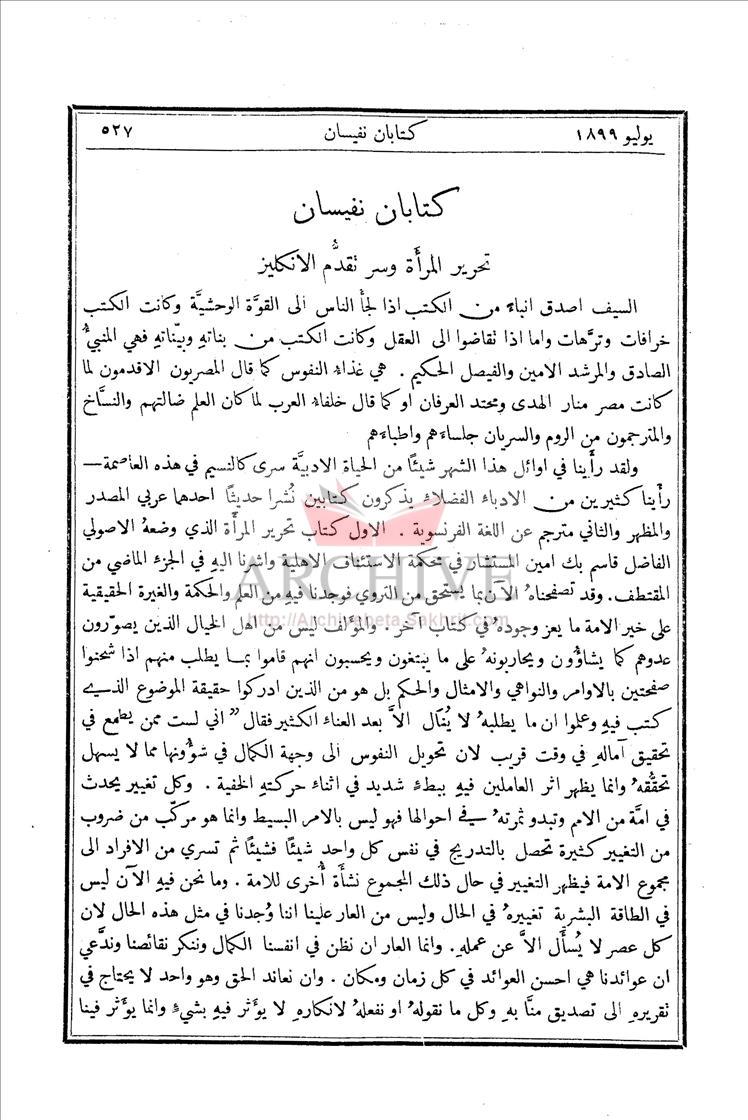 يوليو ١٨٩٩ كتابان نفيسان ٥٢٧
كتابان نفيسان
تحرير المرأَة وسر نقدُّم الانكليز
السيف اصدق انباءً من الكتب اذا لجأَ الناس الى القوَّة الوحشيَّة وكانت الكتب
خرافات وترَّهات واما اذا نقاضوا الى العقل وكانت الكتب من بناتهِ وبيّناتهِ فهي المنبيُّ
الصادق والمرشد الامين والفيصل الحكيم . هي غذاءُ النفوس كما قال المصريون الاقدمون لما
كانت مصر منار الهدى ومحتد العرفان او كما قال خلفاءُ العرب لما كان العلم ضالتهم والنسَّاخ
والمترجمون من الروم والسريان جلساءَهم واطباءَهم
ولقد رأَينا في اوائل هذا الشهر شيئًا من الحياة الادبيَّة سرى كالنسيم في هذه العاصمة —
رأَينا كثيرين من الادباء الفضلاء يذكرون كتابين نُشرا حديثًا احدهما عربي المصدر
والمظهر والثاني مترجم عن اللغة الفرنسوية . الاول كتاب تحرير المرأَة الذي وضعهُ الاصولي
الفاضل قاسم بك امين المستشار في محكمة الاستئناف الاهلية واشرنا اليهِ في الجزءِ الماضي من
المقتطف. وقد تصفحناهُ الآن بما يستحق من التروي فوجدنا فيهِ من العلم والحكمة والغيرة الحقيقية
على خير الامة ما يعز وجودهُ في كتاب آخر . والمؤلف ليس من اهل الخيال الذين يصوّرون
عدوهم كما يشاؤُون ويحاربونهُ على ما يبتغون ويحسبون انهم قاموا بما يطلب منهم اذا شحنوا
صفحتين بالاوامر والنواهي والامثال والحكم بل هو من الذين ادركوا حقيقة الموضوع الذي
كتب فيهِ وعلموا ان ما يطلبهُ لا يُنَال الاَّ بعد العناء الكثير فقال " اني لست ممن يطمع في
تحقيق آمالهِ في وقت قريب لان تحويل النفوس الى وجهة الكمال في شؤُونها مما لا يسهل
تحقُّقهُ وانما يظهر اثر العاملين فيهِ ببطءٍ شديد في اثناء حركتهِ الخفية . وكل تغيير يحدث
في امَّة من الامم وتبدو ثمرتهُ في احوالها فهو ليس بالامر البسيط وانما هو مركّب من ضروب
من التغيير كثيرة تحصل بالتدريج في نفس كل واحد شيئًا فشيئًا ثم تسري من الافراد الى
مجموع الامة فيظهر التغيير في حال ذلك المجموع نشأَة أُخرى للامة . وما نحن فيهِ الآن ليس
في الطاقة البشرية تغييرهُ في الحال وليس من العار علينا اننا وُجدنا في مثل هذه الحال لان
كل عصر لا يُسأَل الاَّ عن عملهِ. وانما العار ان نظن في انفسنا الكمال وننكر نقائصنا وندَّعي
ان عوائدنا هي احسن العوائد في كل زمان ومكان . وان نعاند الحق وهو واحد لا يحتاج في
نقريرهِ الى تصديق منَّا بهِ وكل ما نقولهُ او نفعلهُ لانكارهِ لا يوَّثر فيهِ بشيءٍ وانما يوَّثر فينا
ARCHIVE
http://Archivebeta.Sakhrit.com